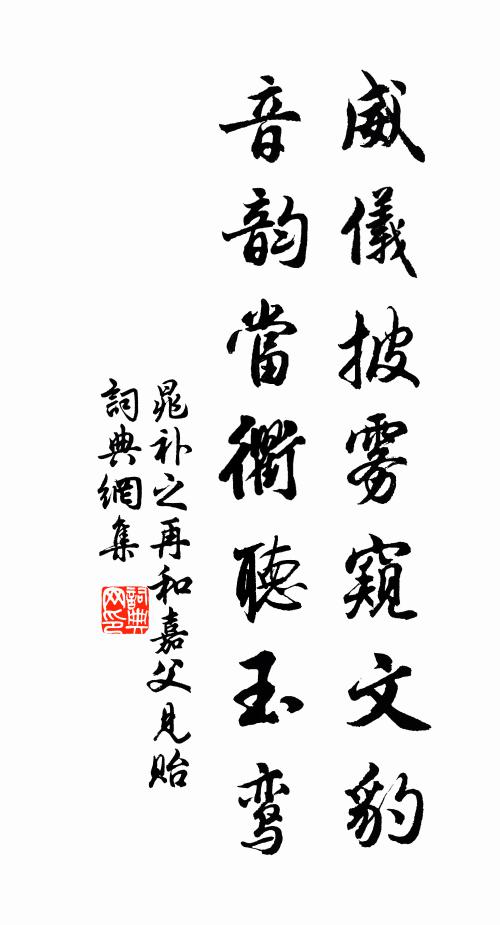 威儀披雾窺文豹
音韵當衢聽玉鸾
晁补之再和嘉父見贻
詞典網集
詞典网印